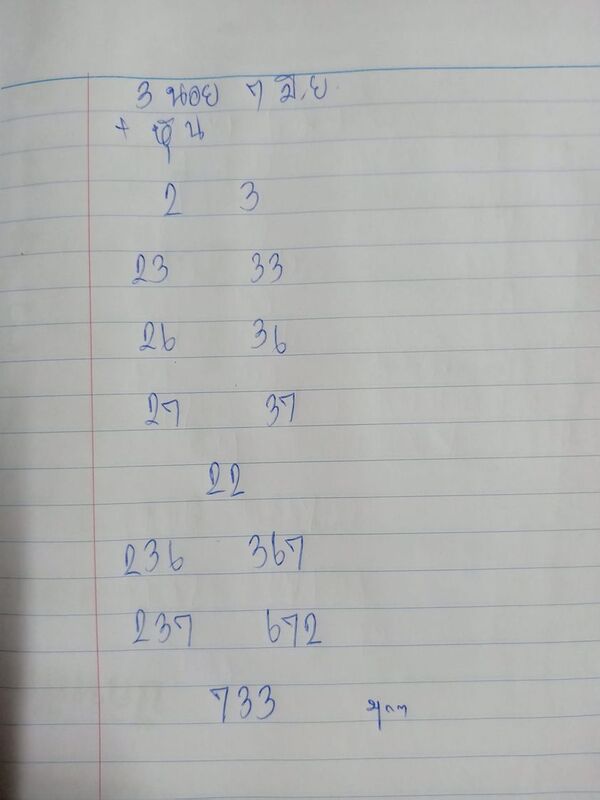 3 นอย 7 มิ.ย.
+ หุ้น
2 3
23 33
26 36
27 37
22
236 367
237 672
733